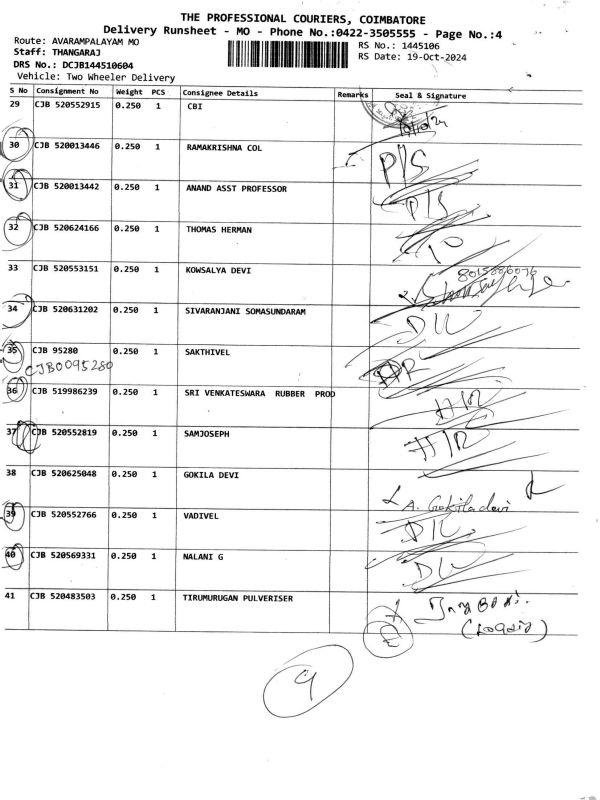 THE PROFESSIONAL COURIERS, COIMBATORE
Delivery Runsheet - MO - Phone No.:0422-3505555 - Page No.:4
Route: AVARAMPALAYAM MO
RS No.: 1445106
Staff: THANGARAJ
RS Date: 19-Oct-2024
DRS No.: DCJB144510604
Vehicle: Two Wheeler Delivery
S No Consignment No Weight PCS Consignee Details Remarks Seal & Signature
29 CJB 520552915 0.250 1 CBI
30 CJB 520013446 0.250 1 RAMAKRISHNA COL P/S
31 CJB 520013442 0.250 1 ANAND ASST PROFESSOR P/S
32 CJB 520624166 0.250 1 THOMAS HERMAN
33 CJB 520553151 0.250 1 KOWSALYA DEVI
34 CJB 520631202 0.250 1 SIVARANJANI SOMASUNDARAM D/L
35 CJB 95280 0.250 1 SAKTHIVEL
CJB0095280
36 CJB 519986239 0.250 1 SRI VENKATESWARA RUBBER PROD
37 CJB 520552819 0.250 1 SAMJOSEPH
38 CJB 520625048 0.250 1 GOKILA DEVI A. Gokiladevi
39 CJB 520552766 0.250 1 VADIVEL D/L
40 CJB 520569331 0.250 1 NALANI G D/L
41 CJB 520483503 0.250 1 TIRUMURUGAN PULVERISER
9